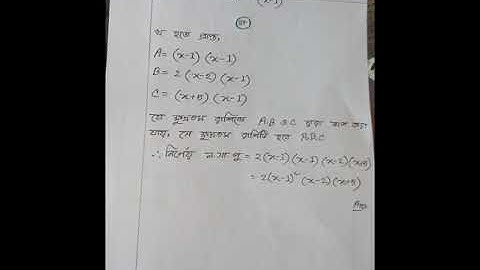 (x-1)
গ
খ হতে প্রাপ্ত,
A = (x-1) (x-1)
B = 2 (x-2) (x-1)
C = (x+5) (x-1)
যে ক্ষুদ্রতম রাশিকে A, B ও C দ্বারা ভাগ করা
যায়, সে ক্ষুদ্রতম রাশিটি হবে
∴ নির্ণেয় ল.সা.গু = 2(x-1) (x-1) (x-2) (x+5)
= 2(x-1)² (x-2) (x+5)
Ans